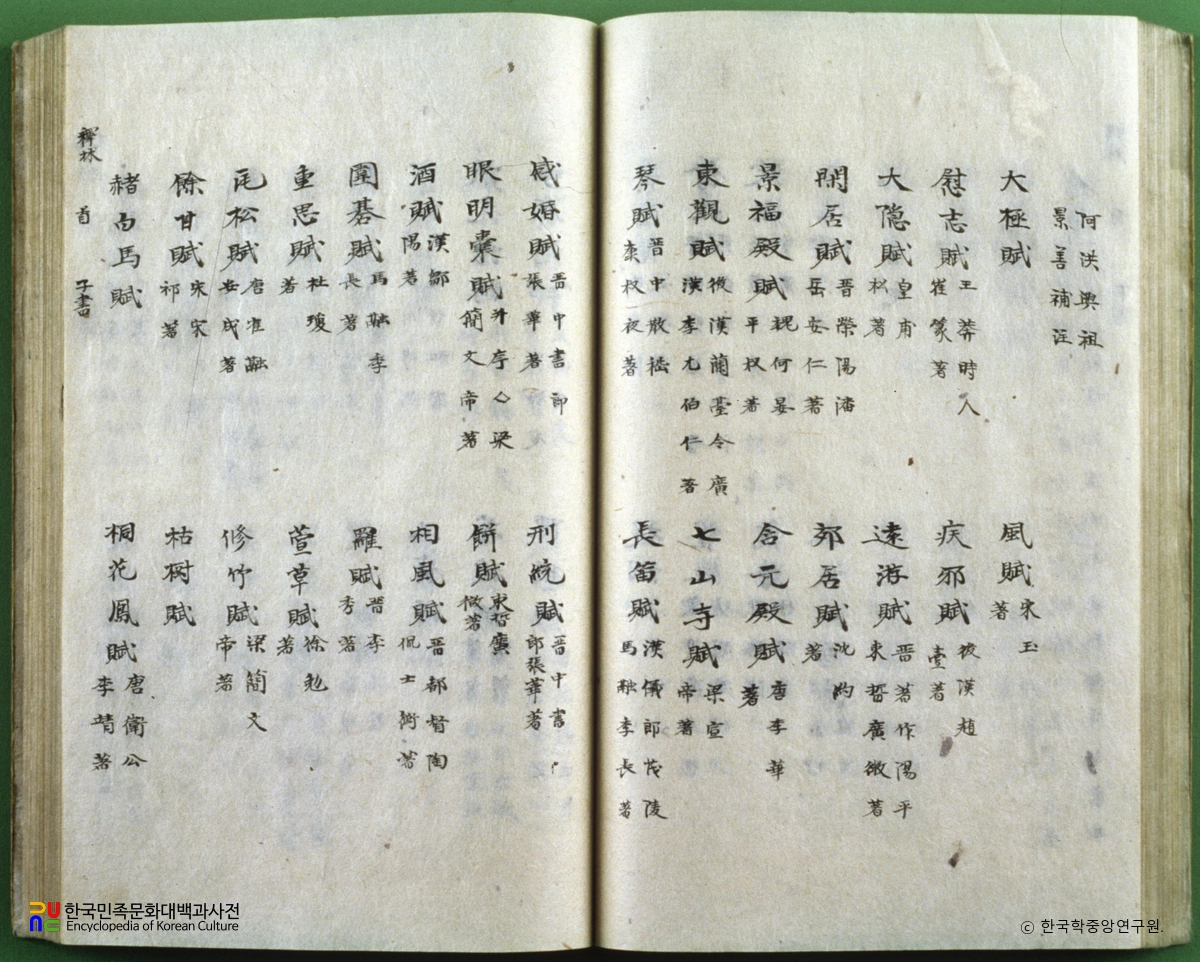 洪興祖
景善補注
大極賦
風賦 宋玉著
慰志賦 王莽時人崔篆著
疾邪賦 後漢趙壹著
大隐賦 皇甫松著
遠游賦 晋著作陽平束晳廣微著
閑居賦 晋滎陽潘岳安仁著
郊居賦 沈約著
景福殿賦 魏何晏平叔著
含元殿賦 唐李華著
東觀賦 後漢蘭臺令廣漢李尤伯仁著
七山寺賦 梁宣帝著
琴賦 晋中散嵇康叔夜著
長笛賦 漢儀郎茂陵馬融季長著
感婚賦 晋中書郎張華著
刑統賦 晋中書郎張華著
眼明囊賦 并序 梁簡文帝著
餅賦 束晳廣微著
酒賦 漢鄒陽著
相風賦 晋都督陶侃士衡著
圍碁賦 馬融季長著
羅賦 晋李秀著
重思賦 杜瓊著
萱草賦 徐勉著
瓦松賦 唐崔融安成著
修竹賦 梁簡文帝著
餘甘賦 宋宋祁著
枯樹賦
赭白馬賦
桐花鳳賦 唐衛公李靖著
稗林 首 子書
한국민족문화대백과사전
Encyclopedia of Korean Culture
ⓒ 한국학중앙연구원.